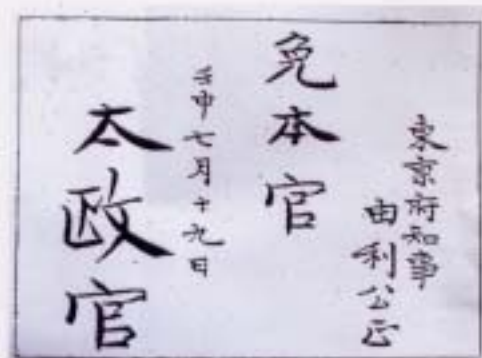 東京府知事
由利公正
免本官
壬申七月十九日
太政官